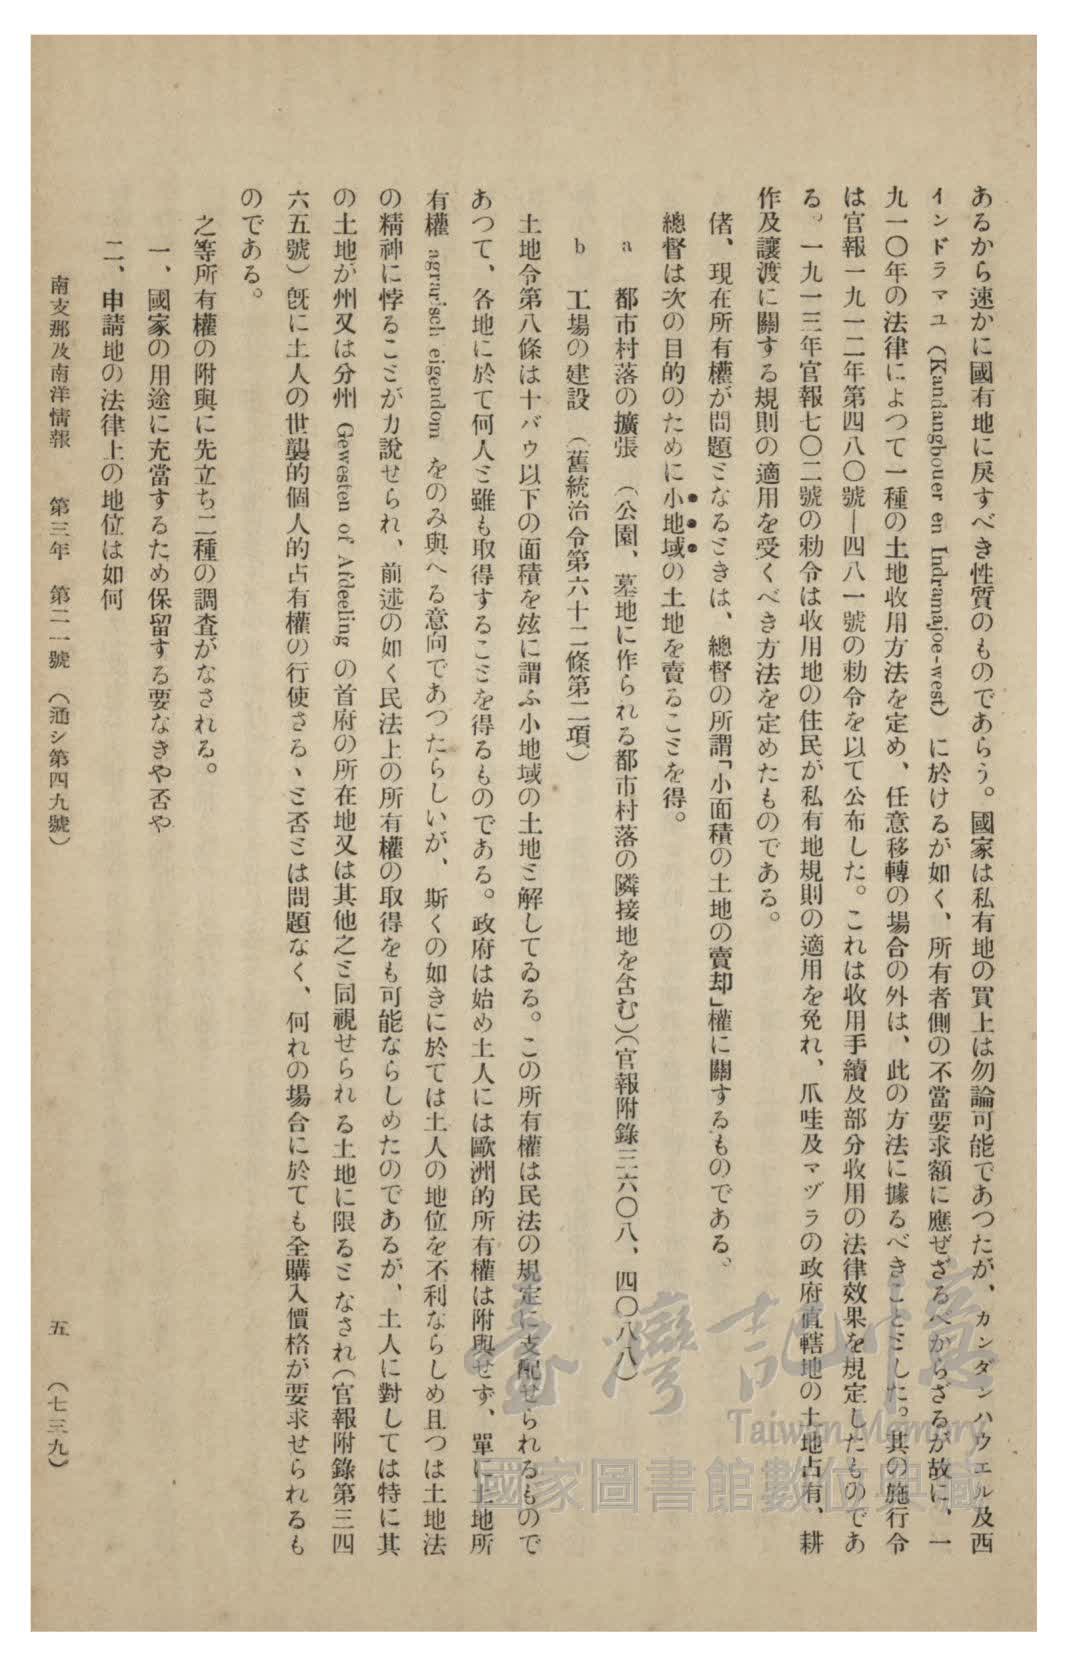 あるから速かに國有地に戾すべき性質のものであらう。國家は私有地の買上は勿論可能であつたが、カンダンハウエル及西
インドラマユ(Kandangbouer en Indramajoe-west)に於けるが如く、所有者側の不當要求額に應ぜざるべからざるが故に、一
九一〇年の法律によつて一種の土地收用方法を定め、任意移轉の場合の外は、此の方法に據るべきことゝした。其の施行令
は官報一九一二年第四八〇號―四八一號の勅令を以て公布した。これは收用手續及部分收用の法律效果を規定したものであ
る。一九一三年官報七〇二號の勅令は收用地の住民が私有地規則の適用を免れ、爪哇及マヅラの政府直轄地の土地占有、耕
作及讓渡に關する規則の適用を受くべき方法を定めたものである。
偖、現在所有權が問題となるときは、總督の所謂「小面積の土地の賣却」權に關するものである。
總督は次の目的のために小地域の土地を賣ることを得。
a 都市村落の擴張 (公園、墓地に作られる都市村落の隣接地を含む)(官報附錄三六〇八、四〇八八)
b 工場の建設 (舊統治令第六十二條第二項)
土地令第八條は十バウ以下の面積を玆に謂ふ小地域の土地と解してゐる。この所有權は民法の規定に支配せられるもので
あつて、各地に於て何人と雖も取得することを得るものである。政府は始め土人には歐洲的所有權は附與せず、單に土地所
有權 agrarisch eigendom をのみ與へる意向であつたらしいが、斯くの如きに於ては土人の地位を不利ならしめ且つは土地法
の精神に悖ることが力說せられ、前述の如く民法上の所有權の取得をも可能ならしめたのであるが、土人に對しては特に其
の土地が州又は分州 Gewesten of Afdeeling の首府の所在地又は其他之と同視せられる土地に限るとなされ(官報附錄第三四
六五號)旣に土人の世襲的個人的占有權の行使さるゝと否とは問題なく、何れの場合に於ても全購入價格が要求せられるも
のである。
之等所有權の附與に先立ち二種の調査がなされる。
一、國家の用途に充當するため保留する要なきや否や
二、申請地の法律上の地位は如何
南支那及南洋情報 第三年 第二一號 (通シ第四九號) 五 (七三九)
臺灣記憶
Taiwan Memory
國家圖書館數位典藏